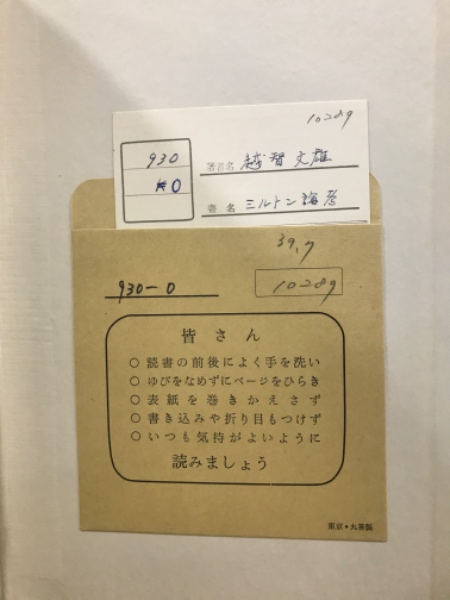 10289
930
著者名 越智文雄
O
書名 ミルトン論考
39.7
930-O
10289
皆さん
○ 読書の前後によく手を洗い
○ ゆびをなめずにページをひらき
○ 表紙を巻きかえさず
○ 書き込みや折り目もつけず
○ いつも気持がよいように
読みましょう
東京・丸善製